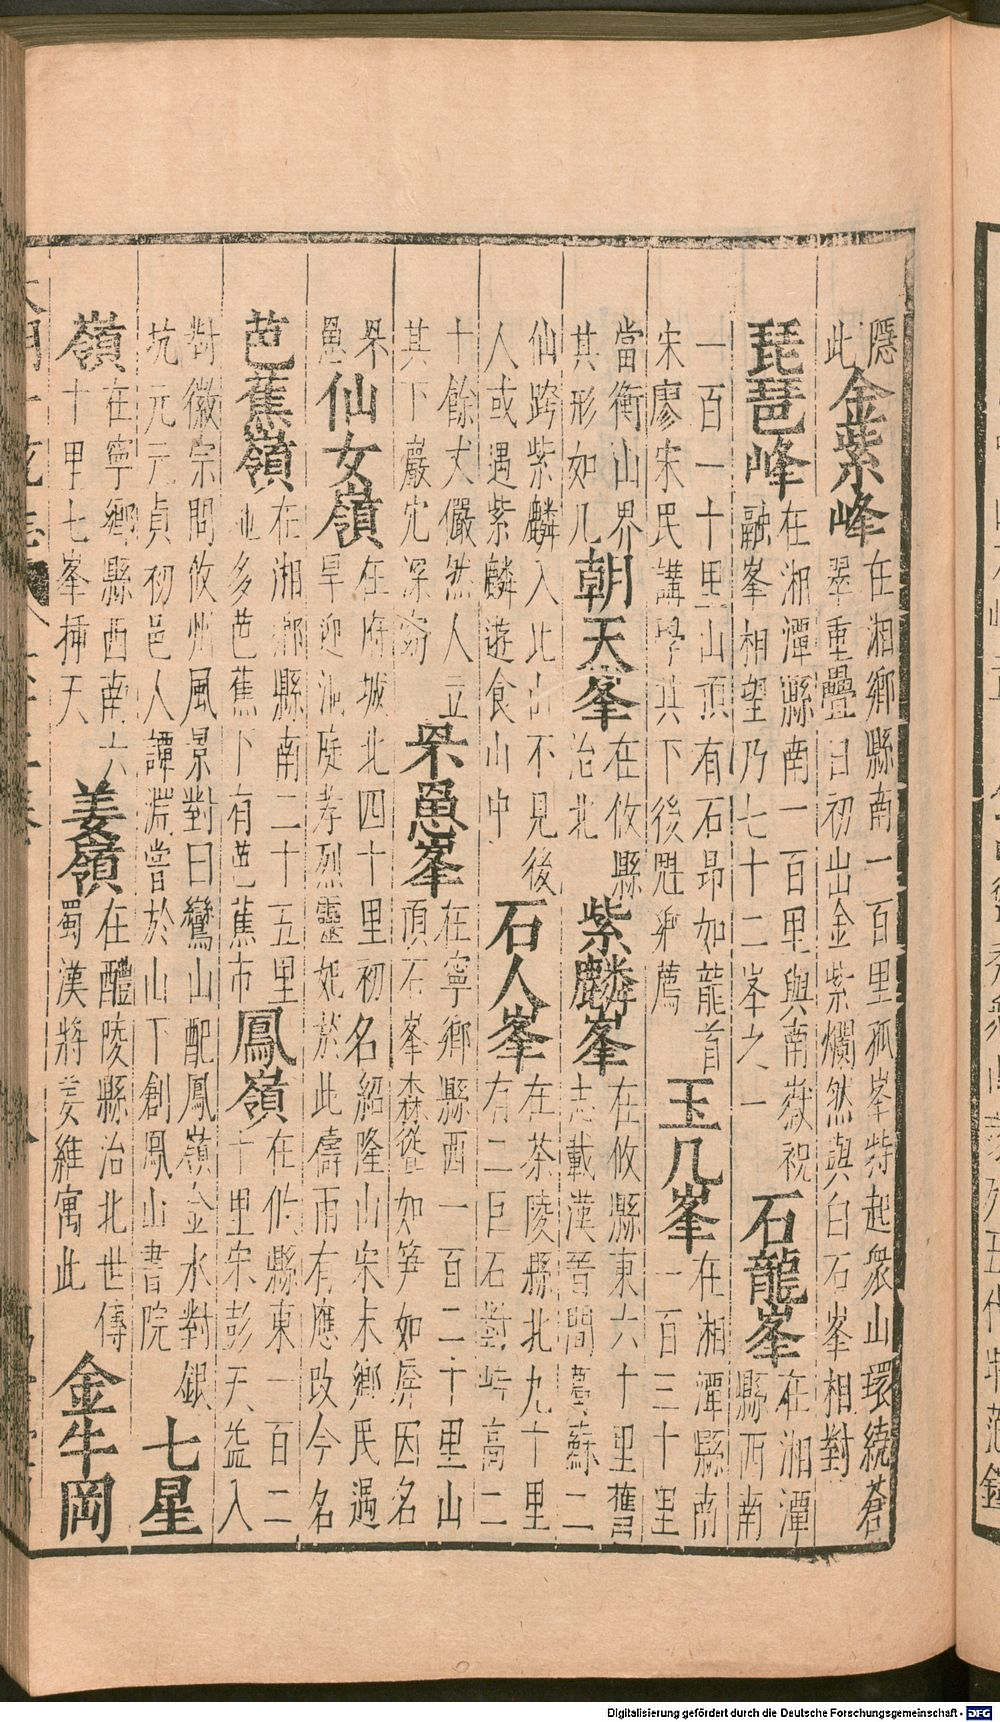 隱 金紫峰 在湘鄉縣南一百里孤峯特起衆山環繞蒼
此 翠重疊日初出金紫爛然與白石峯相對
琵琶峰 在湘潭縣南一百里與南嶽祝 石龍峯 在湘潭
融峯相望乃七十二峯之一 縣西南
一百一十里山頂有石昂如龍首 玉几峯 在湘潭縣南
宋廖宋民講學其下後魁鄉薦 一百三十里
當衡山界 朝天峯 在攸縣 紫麟峯 在攸縣東六十里舊
其形如几 治北 志載漢晉間 蘇二
仙跨紫麟入此山不見後 石人峯 在茶陵縣北九十里
人或遇紫麟遊食山中 有二巨石對峙高二
十餘丈儼然人立 罘罳峯 在寧鄉縣西一百二十里山
其下巖穴深窈 頂石峯森聳如笋如屏因名
罘 仙女嶺 在府城北四十里初名紹隆山宋末鄉民遇
罳 旱迎洞庭孝烈靈妃於此禱雨有應改今名
芭蕉嶺 在湘鄉縣南二十五里 鳳嶺 在攸縣東一百二
地多芭蕉下有芭蕉市 十里宋彭天益入
對徽宗問攸州風景對曰鸞山配鳳嶺金水對銀 七星
坑元元貞初邑人譚淵嘗於山下創鳳山書院
嶺 在寧鄉縣西南六 姜嶺 在醴陵縣治北世傳 金牛岡
十里七峯挿天 蜀漢將姜維寓此
Digitalisierung gefördert durch die Deutsche Forschungsgemeinschaft - DFG